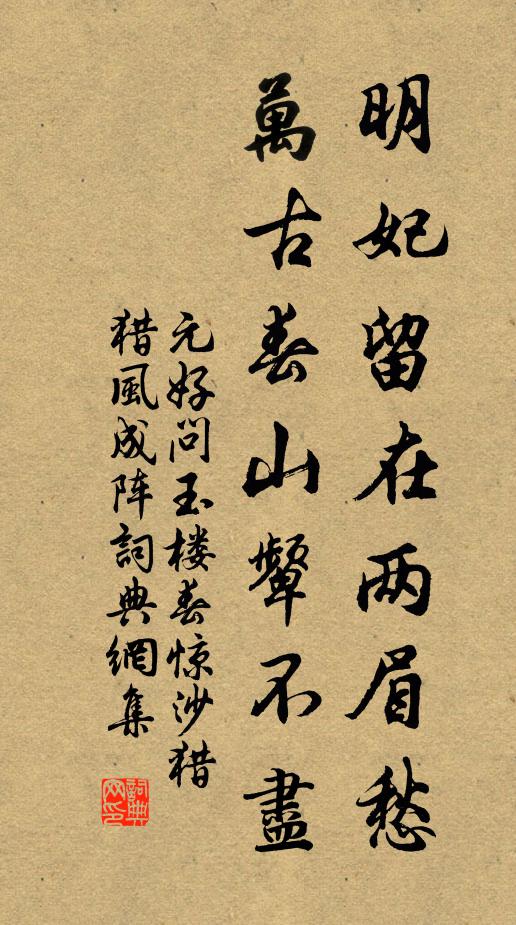 明妃留在两眉愁
萬古春山颦不盡
元好问玉楼春惊沙猎
猎風成阵詞典網集
詞典
网印